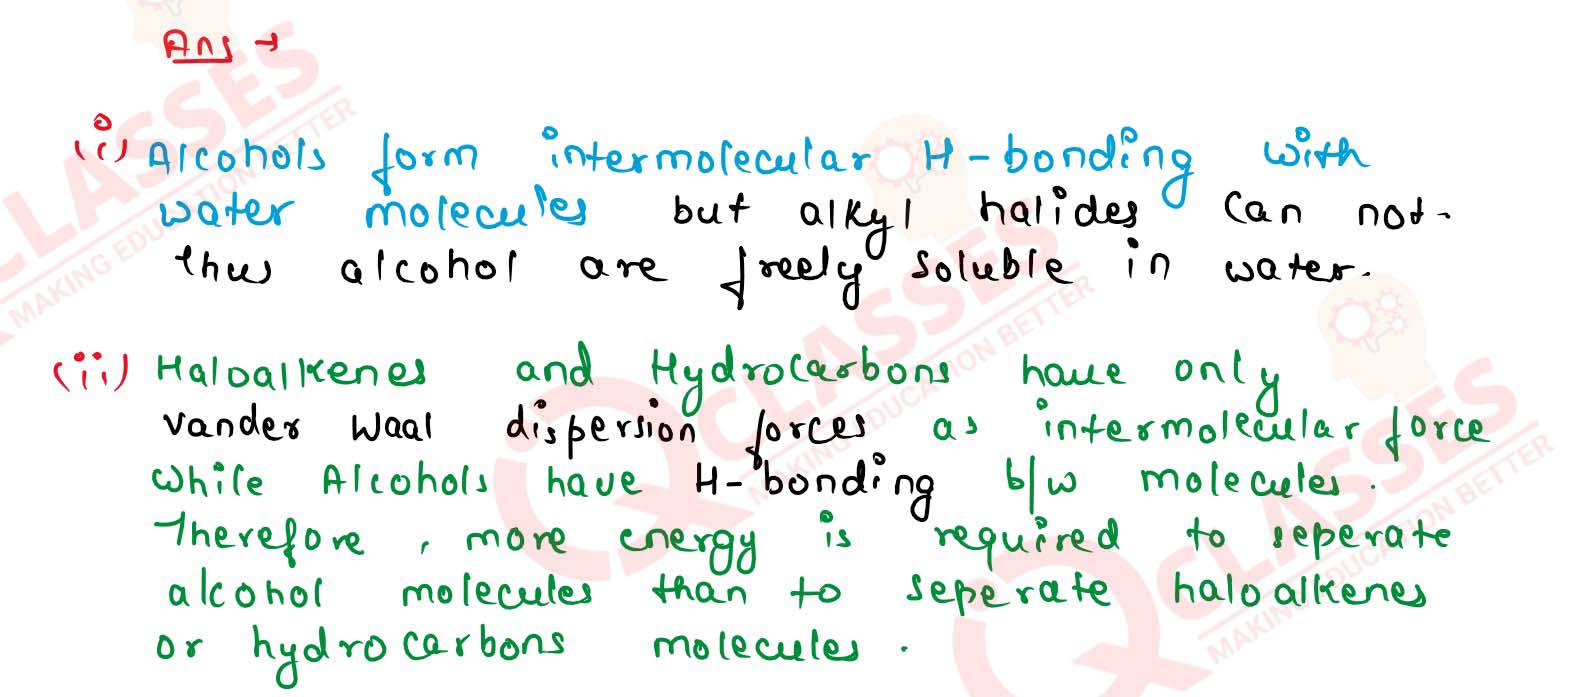 Ans →
(i) Alcohols form intermolecular H-bonding with
water molecules but alkyl halides can not.
thus alcohol are freely soluble in water.
(ii) Haloalkenes and Hydrocarbons have only
vander waal dispersion forces as intermolecular force
while Alcohols have H-bonding b/w molecules.
Therefore, more energy is required to seperate
alcohol molecules than to seperate haloalkenes
or hydrocarbons molecules.
QCLASSES
MAKING EDUCATION BETTER
QCLASSES
MAKING EDUCATION BETTER
QCLASSES
MAKING EDUCATION BETTER